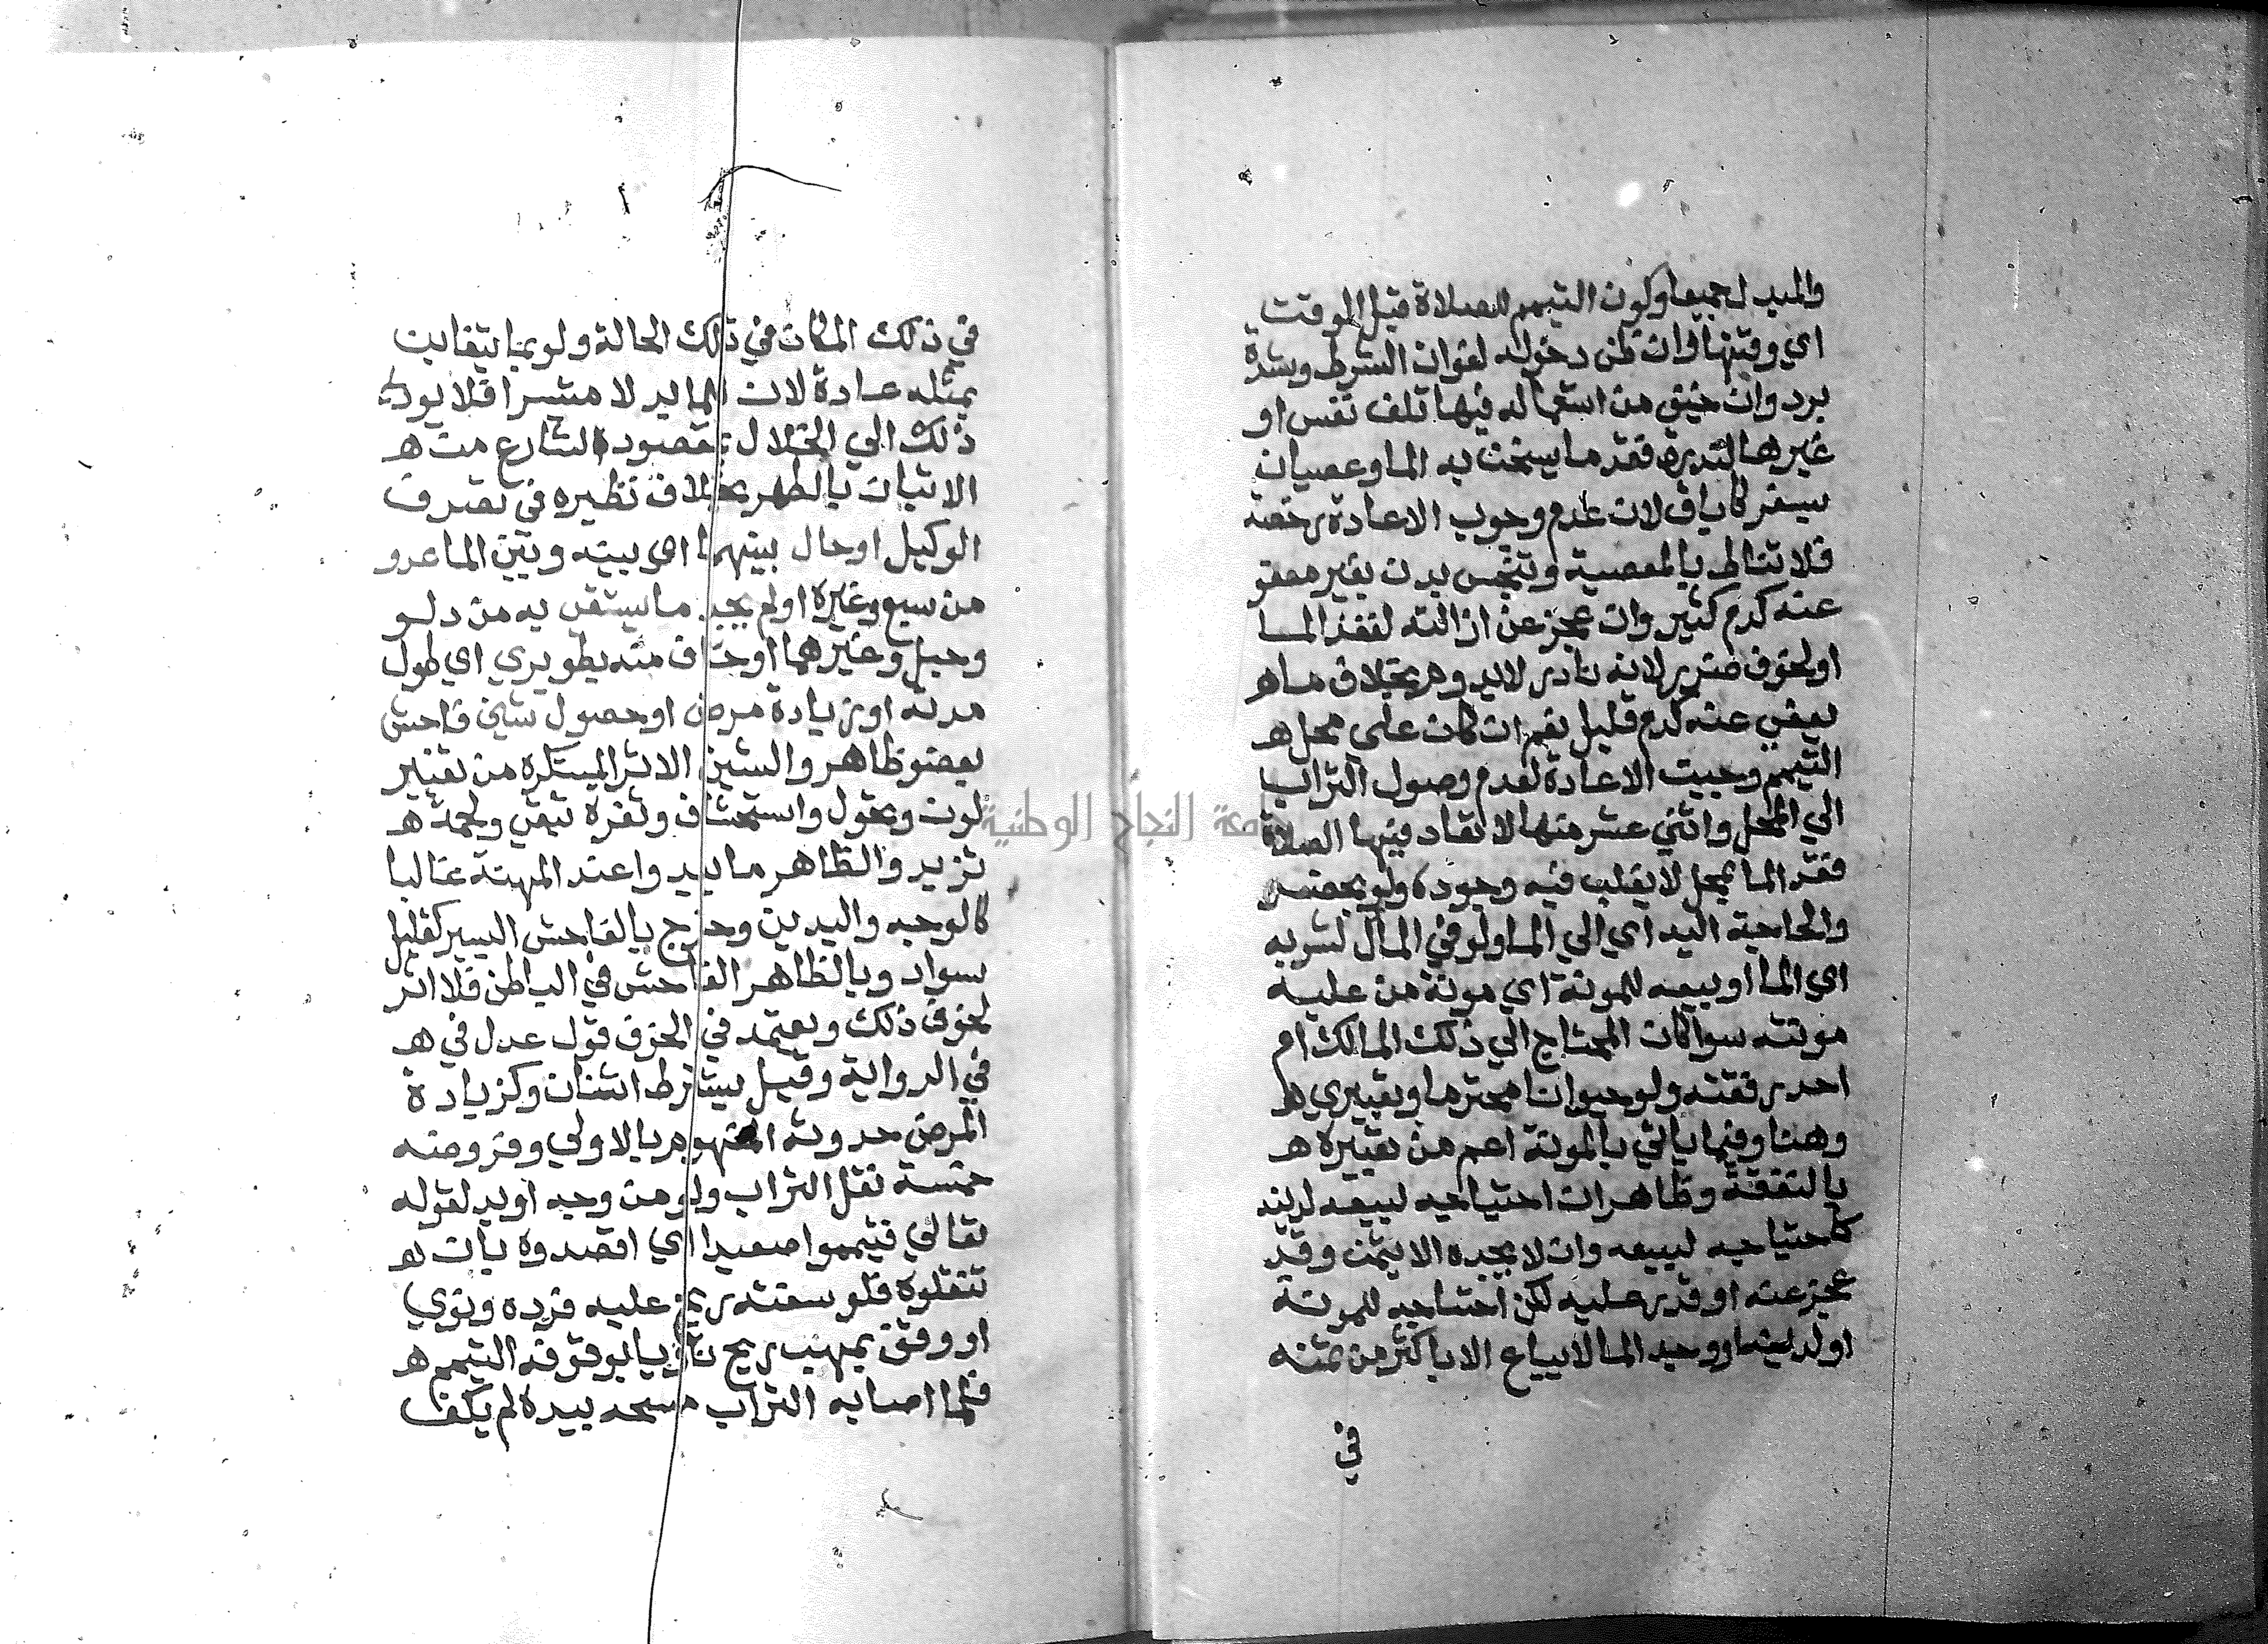 والمبدل جميعا وكون التيمم للصلاة قبل الوقت
اي وقتها وان ظن دخوله لفوات الشرط وشدة
برد وان خيف من استعماله فيها تلف نفس او
غيرها لندرة فقد ما يسخن به الما وعصيان
بسفر كاباق لان عدم وجوب الاعادة رخصة
فلا تناط بالمعصية وتنجس بدن بغير معفو
عنه كدم كثير وان عجز عن ازالته لفقد الما
او لخوف ضرر لانه نادر لا يدوم بخلاف ما هـ
يعفي عنه كدم قليل نعم ان كان علي محل هـ
التيمم وجبت الاعادة لعدم وصول التراب
الي المحل واثني عشر منها لا تعاد فيها الصلاة
فقد الما بمحل لا يغلب فيه وجوده ولو بحضر
والحاجة اليه اي الي الما ولو في المال لشربه
اي الما او بيعه للمونة اي مونة من عليه
مونته سوا كان المحتاج الي ذلك المالك ام
احد رفقته ولو حيوانا محترما وتعبيري هـ
وهنا وفيما ياتي بالمونة اعم من تعبيره هـ
بالنفقة وظاهر ان احتياجه لبيعه لدينه
كاحتياجه لبيعه وان لا يجده الا بثمن وقد
عجز عنه او قدر عليه لكن احتاجه للمونة
او لدينه او وجد الما لا يباع الا باكثر من ثمنه
في
في ذلك المكان في تلك الحالة ولو بما يتغابن
بمثله عادة لان للما بدلا متيسرا فلا يودي
ذلك الي اختلال مقصود الشارع من هـ
الاتيان بالطهر بخلاف نظيره في تصرف
الوكيل او حال بينهما اي بينه وبين الما عدو
من سبع وغيره او لم يجد ما يستقي به من دلو
وحبل وغيرهما او خاف منه بطو بري اي طول
مدته او زيادة مرض او حصول شين فاحش
بعضو ظاهر والشين الاثر المستكره من تغير
لون ونحول واستحشاف وثغرة تبقي ولحمة هـ
تزيد والظاهر ما يبدوا عند المهنة غالبا
كالوجه واليدين وخرج بالفاحش اليسير كقليل
سواد وبالظاهر الفاحش في الباطن فلا اثر
لخوف ذلك ويعتمد في الخوف قول عدل في هـ
في الرواية وقيل يشترط اثنان وكزيادة
المرض حدوثه المفهوم بالاولي وفروضه
خمسة نقل التراب ولو من وجه او يد لقوله
تعالي فتيمموا صعيدا اي اقصدوه بان هـ
تنقلوه فلو سفته ريح عليه فردده ونوي
او وقف بمهب ريح ناويا بوقوفه التيمم هـ
فلما اصابه التراب مسحه بيده لم يكف
جامعة النجاح الوطنية